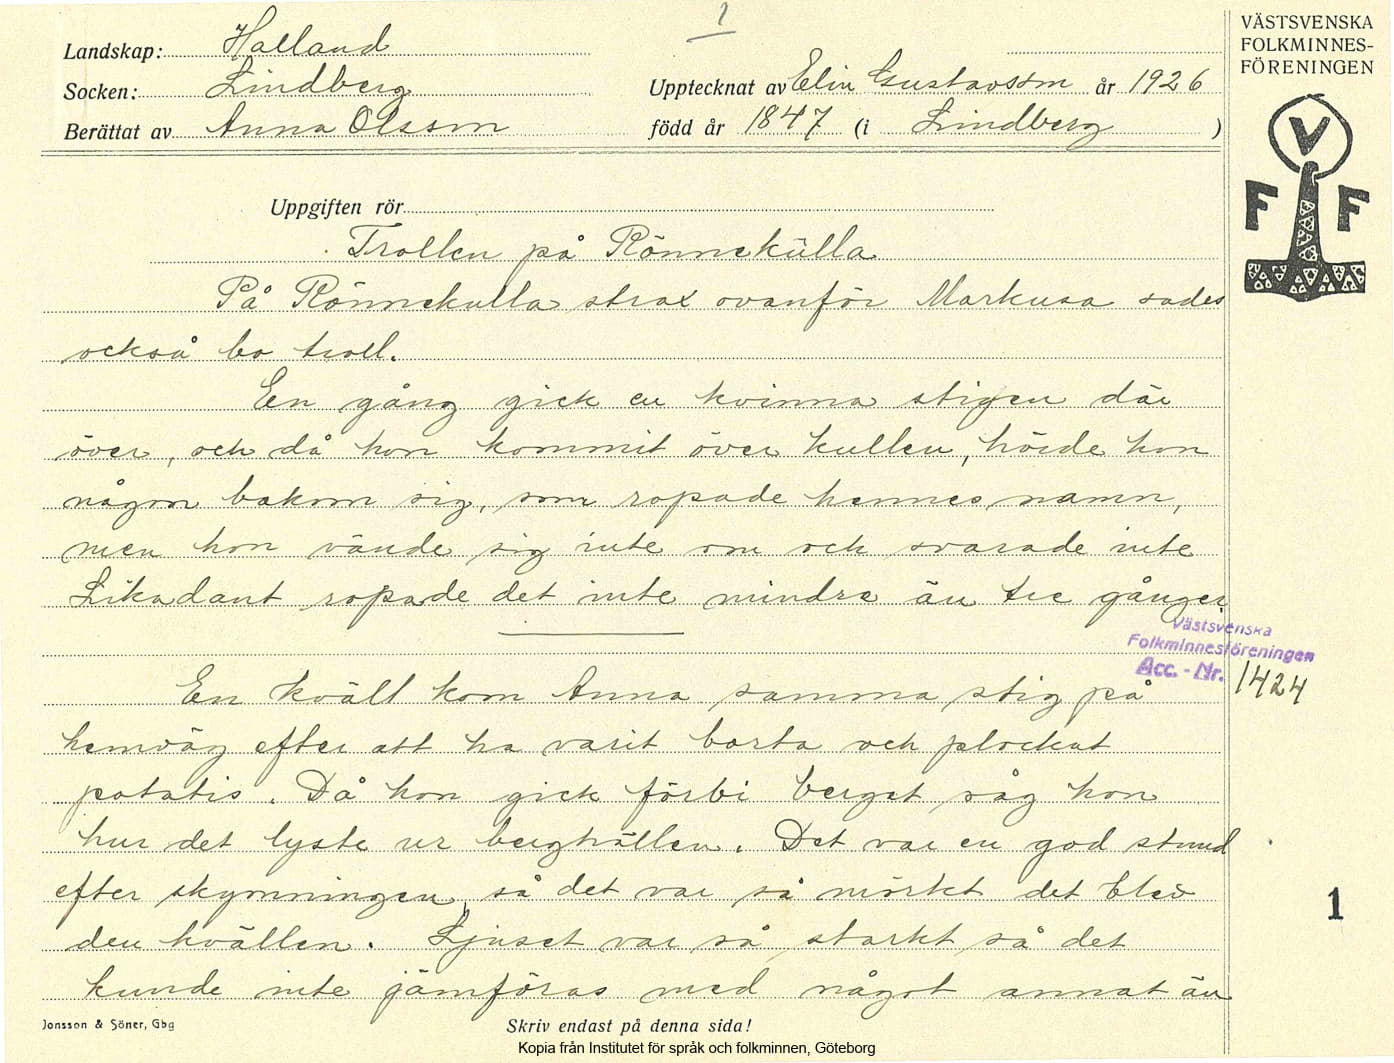 1
Landskap: Halland
Socken: Lindberg
Upptecknat av Elin Gustavsson år 1926
Berättat av Anna Olsson
född år 1847 (i Lindberg )
VÄSTSVENSKA
FOLKMINNES-
FÖRENINGEN
V
F F
Uppgiften rör
Trollen på Rönnekulla
På Rönnekulla strax ovanför Markusa sades
också bo troll.
En gång gick en kvinna stigen där
över, och då hon kommit över kullen, hörde hon
någon bakom sig, som ropade hennes namn,
men hon vände sig inte om och svarade inte
Likadant ropade det inte mindre än tre gånger.
Västsvenska
Folkminnesföreningen
Acc. - Nr. 1424
En kväll kom Anna samma stig på
hemväg efter att ha varit borta och plockat
potatis. Då hon gick förbi berget såg hon
hur det lyste ur berghällen. Det var en god stund
efter skymningen, så det var så mörkt det blev
den kvällen. Ljuset var så starkt så det
kunde inte jämföras med något annat än
1
Jonsson & Söner, Gbg
Skriv endast på denna sida!
Kopia från Institutet för språk och folkminnen, Göteborg